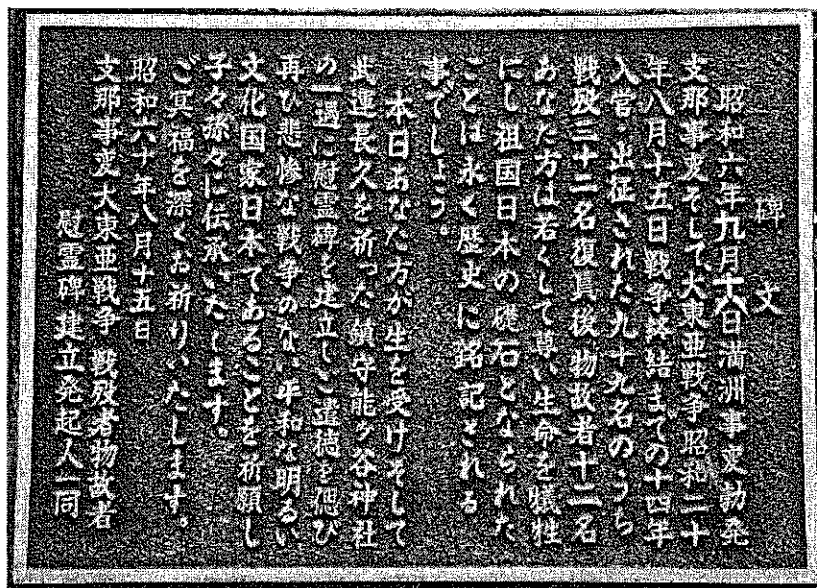 碑文
昭和六年九月十八日満洲事変勃発
支那事変そして大東亜戦争昭和二十
年八月十五日戦争終結までの十四年
入営・出征された九十九名のうち
戦歿三十二名復員後物故者十二名
あなた方は若くして尊い生命を犠牲
にし祖国日本の礎石となられた
ことは永く歴史に銘記される
事でしょう。
本日あなた方が生を受けそして
武運長久を祈った鎮守能ヶ谷神社
の一遇に慰霊碑を建立しご遺徳を偲び
再び悲惨な戦争のない平和な明るい
文化国家日本であることを祈願し
子々孫々に伝承いたします。
ご冥福を深くお祈りいたします。
昭和六十年八月十五日
支那事変大東亜戦争戦歿者物故者
慰霊碑建立発起人一同